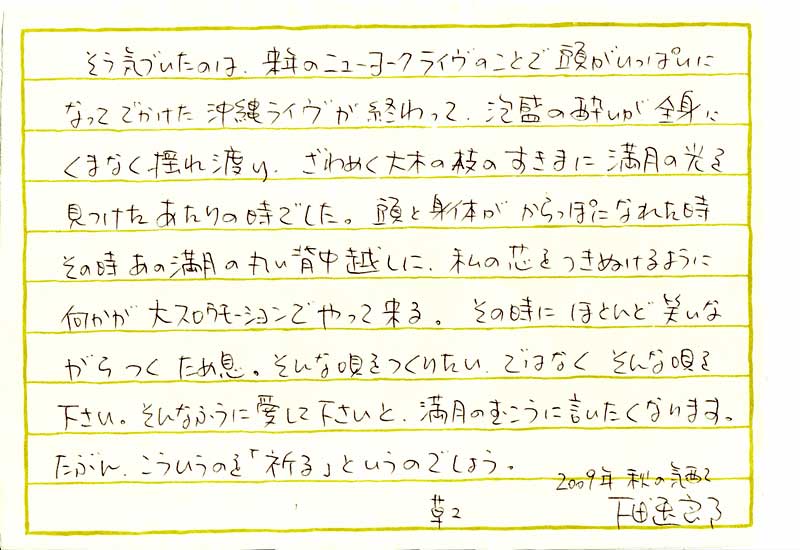 そう気づいたのは、来年のニューヨークライヴのことで頭がいっぱいに
なってでかけた沖縄ライヴが終わって、泡盛の酔いが全身に
くまなく揺れ渡り、ざわめく大木の枝のすきまに満月の光を
見つけたあたりの時でした。頭と身体がからっぽになれた時
その時あの満月の丸い背中越しに、私の芯をつきぬけるように
何かが大スロウモーションでやって来る。その時にほとんど笑いな
がらつくため息。そんな唄をつくりたい、ではなくそんな唄を
下さい。そんなふうに愛して下さいと、満月のむこうに言いたくなります。
たぶん、こういうのを「祈る」というのでしょう。
2009年 秋の気配に
草々
下田逸郎